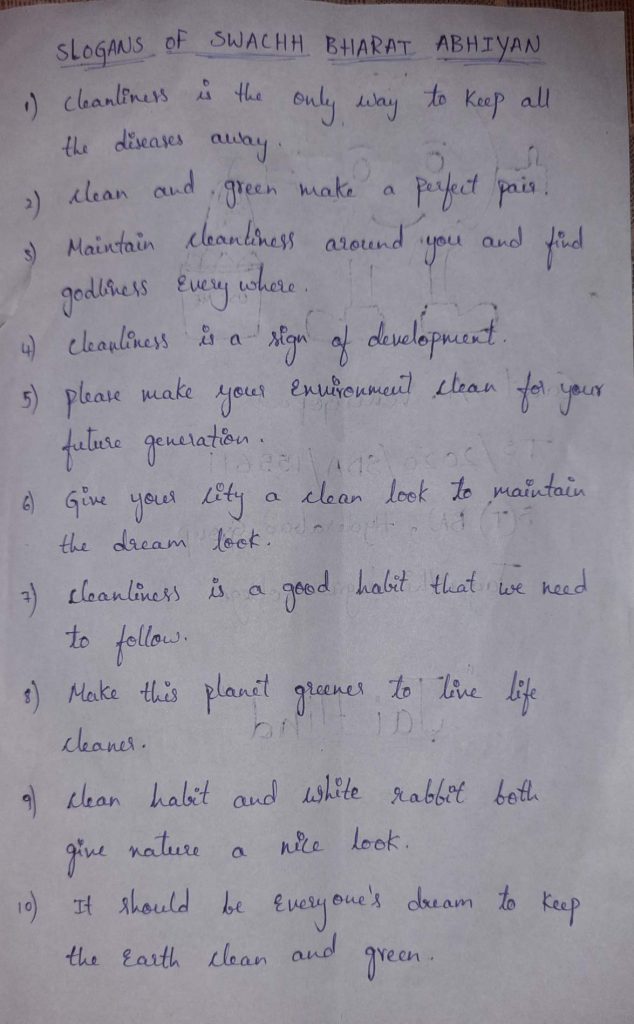 SLOGANS OF SWACHH BHARAT ABHIYAN
1) cleanliness is the only way to keep all
the diseases away.
2) clean and green make a perfect pair.
3) Maintain cleanliness around you and find
godliness every where.
4) cleanliness is a sign of development.
5) please make your Environment clean for your
future generation.
6) Give your city a clean look to maintain
the dream look.
7) cleanliness is a good habit that we need
to follow.
8) Make this planet greener to live life
cleaner.
9) clean habit and white rabbit both
give nature a nice look.
10) It should be Everyone's dream to keep
the Earth clean and green.